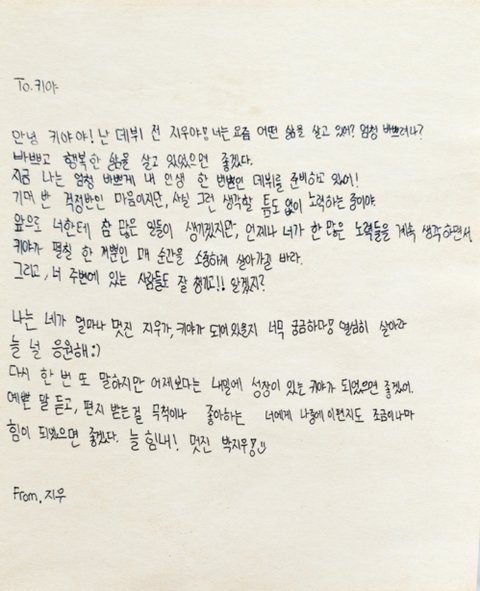 To. 키야
안녕 키야야! 난 데뷔 전 지우야! 너는 요즘 어떤 삶을 살고 있어? 엄청 바쁘려나?
바쁘고 행복한 삶을 살고 있었으면 좋겠다.
지금 나는 엄청 바쁘게 내 인생 한 번뿐인 데뷔를 준비하고 있어!
기대 반 걱정반인 마음이지만, 사실 그런 생각할 틈도 없이 노력하는 중이야
앞으로 너한테 참 많은 일들이 생기겠지만, 언제나 너가 한 많은 노력들을 계속 생각하면서
키야가 펼칠 한 번뿐인 매 순간을 소중하게 살아가길 바라.
그리고, 너 주변에 있는 사람들도 잘 챙기고!! 알겠지?
나는 네가 얼마나 멋진 지우가, 키야가 되어있을지 너무 궁금하다! 열심히 살아라
늘 널 응원해 :)
다시 한 번 또 말하지만 어제보다는 내일에 성장이 있는 키야가 되었으면 좋겠어.
예쁜 말 듣고, 편지 받는걸 무척이나 좋아하는 너에게 나중에 이편지도 조금이나마
힘이 되었으면 좋겠다. 늘 힘내! 멋진 박지우!
From. 지우